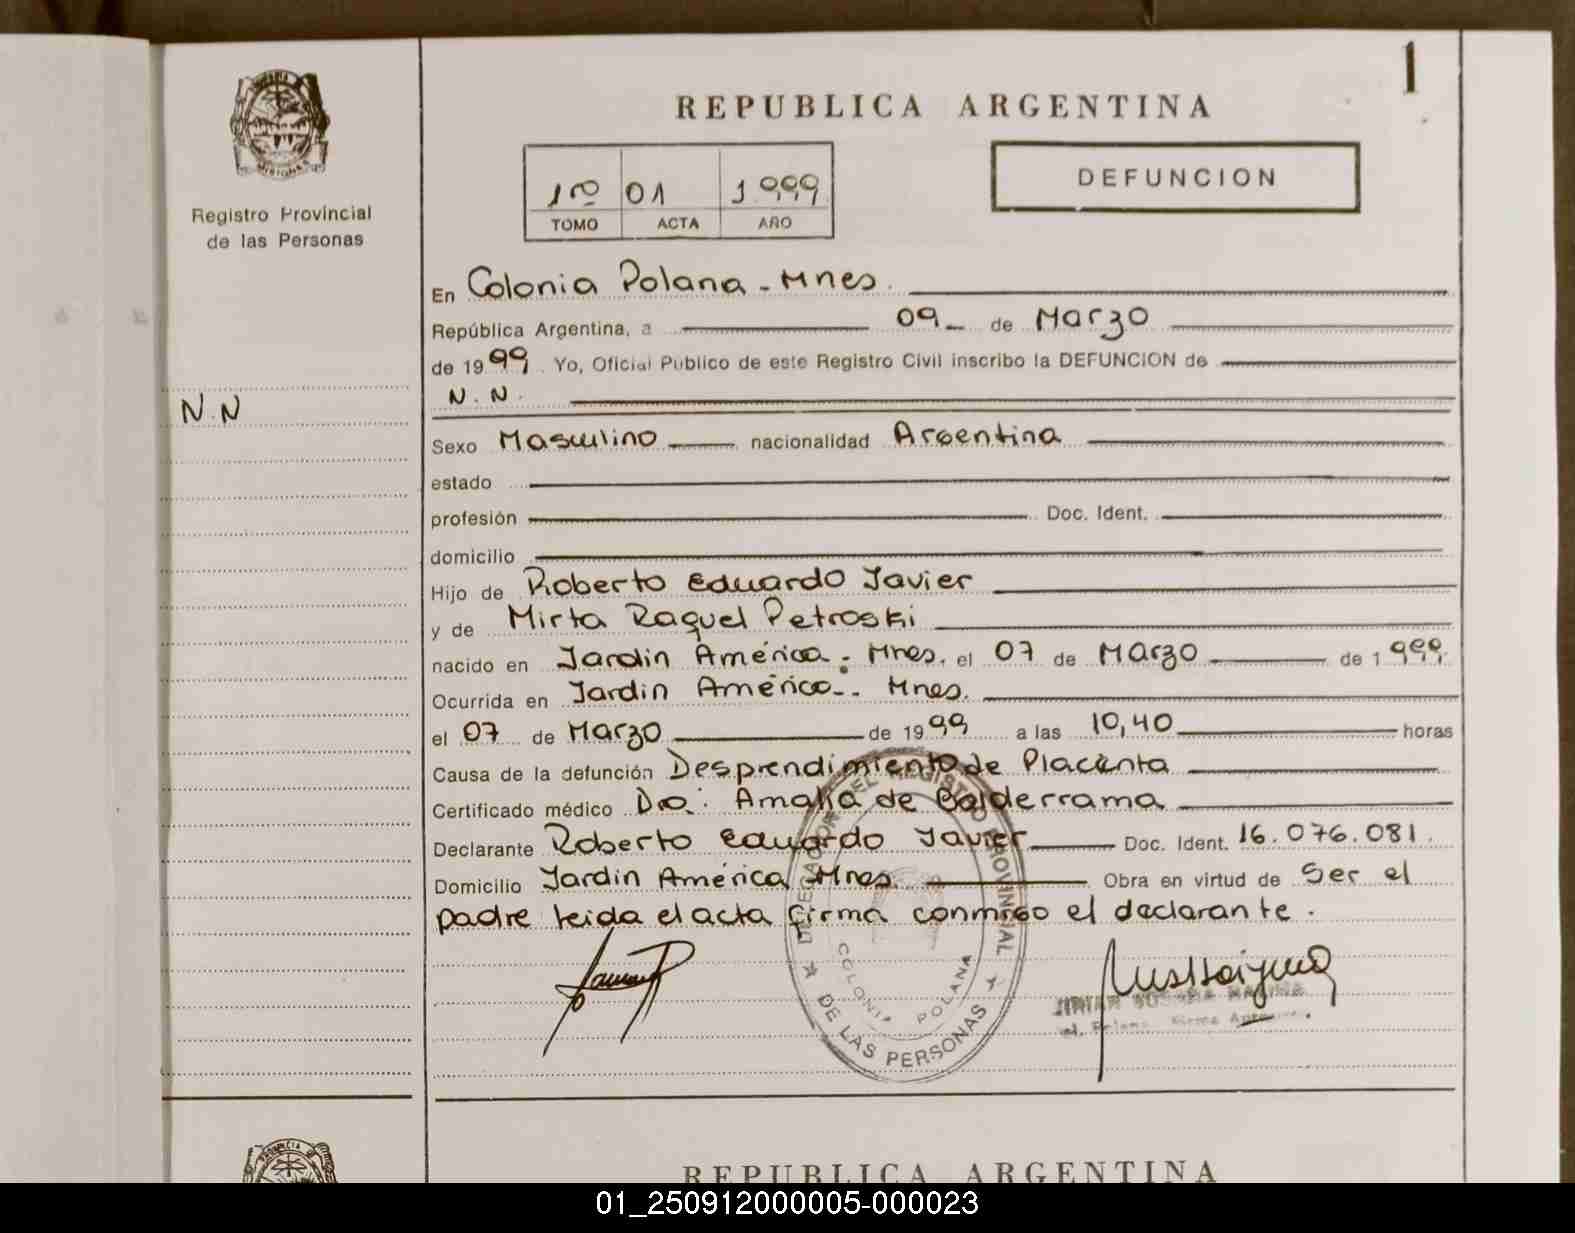 1
REPUBLICA ARGENTINA
1ro 01 1.999
TOMO ACTA AÑO
DEFUNCION
Registro Provincial
de las Personas
N.N
En Colonia Polana - Mnes.
República Argentina, a 09 de Marzo
de 1999. Yo, Oficial Publico de este Registro Civil inscribo la DEFUNCION de
N.N.
Sexo Masculino nacionalidad Argentina
estado
profesión Doc. Ident.
domicilio
Hijo de Roberto Eduardo Javier
y de Mirta Raquel Petroski
nacido en Jardin América. Mnes. el 07 de Marzo de 1999
Ocurrida en Jardin América. Mnes.
el 07 de Marzo de 1999 a las 10,40 horas
Causa de la defunción Desprendimiento de Placenta
Certificado médico Dra. Amalia de Balderrama
Declarante Roberto Eduardo Javier Doc. Ident. 16.076.081.
Domicilio Jardin América Mnes. Obra en virtud de Ser el
padre leida el acta firma conmigo el declarante.
DELEGACION DEL REGISTRO PROVINCIAL
DE LAS PERSONAS
COLONIA POLANA
REPUBLICA ARGENTINA
01_250912000005-000023